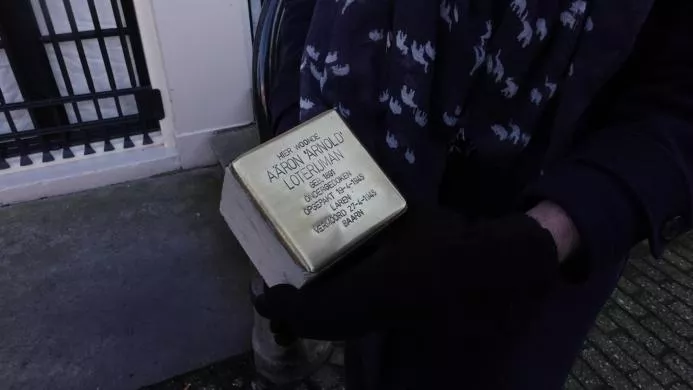 HIER WOONDE
AÄRON 'ARNOLD'
LOTERIJMAN
GEB. 1891
ONDERGEDOKEN
OPGEPAKT 19-4-1943
LAREN
VERMOORD 27-4-1943
BAARN